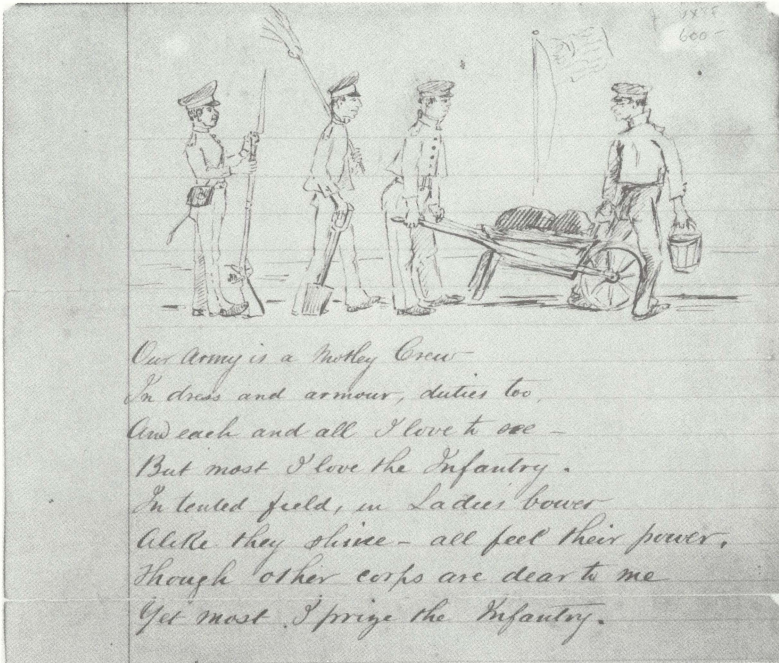 600-
Our Army is a Motley Crew
In dress and armour, duties too,
And each and all I love to see -
But most I love the Infantry.
In tented field, in Ladies bower
Alike they shine - all feel their power,
Though other corps are dear to me
Yet most I prize the Infantry.